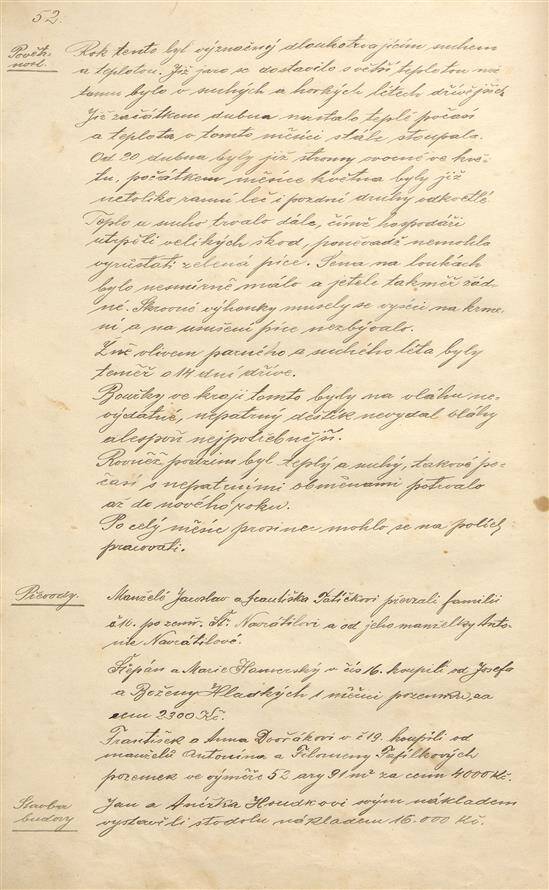 52.
Povětr-
nost.
Rok tento byl význačný dlouhotrvajícím suchem
a teplotou. Již jaro se dostavilo s větší teplotou než
tomu bylo v suchých a horkých letech dřívějších.
Již začátkem dubna nastalo teplé počasí
a teplota v tomto měsíci stále stoupala.
Od 20 dubna byly již stromy ovocné ve kvě-
tu, počátkem měsíce května byly již
netoliko ranní leč i pozdní druhy odkvetlé
Teplo a sucho trvalo dále, čímž hospodáři
utrpěli velikých škod, poněvadž nemohla
vyrůstati zelená píce. Sena na loukách
bylo nesmírně málo a jetele takměř žád-
né. Skrovné výhonky musely se vyžíti na krme-
ní a na usušení píce nezbývalo.
Žně vlivem parného a suchého léta byly
téměř o 14 dní dříve.
Bouřky ve kraji tomto byly na vláhu ne-
vydatné, nepatrný deštík nevydal vláhy
alespoň nejpotřebnější.
Rovněž podzim byl teplý a suchý, takové po-
časí s nepatrnými obměnami potrvalo
až do nového roku.
Po celý měsíc prosinec mohlo se na polích
pracovati.
Převody.
Manželé Jaroslav a Františka Tatíčkovi převzali familii
č 10. pozem. Fr. Navrátilovi a od jeho manželky Anto-
nie Navrátilové.
Štěpán a Marie Hamerský v čís 16. koupili od Josefa
a Boženy Hladkých 1 měřici pozemku za
cenu 2300 Kč.
František a Anna Dvořákovi v č 19. koupili od
manželů Antonína a Filomeny Tafilkových
pozemek ve výměře 52 ary 91 m² za cenu 4000 Kč.
Stavba
budovy
Jan a Anežka Houdkovi svým nákladem
vystavěli stodolu nákladem 16.000 Kč.